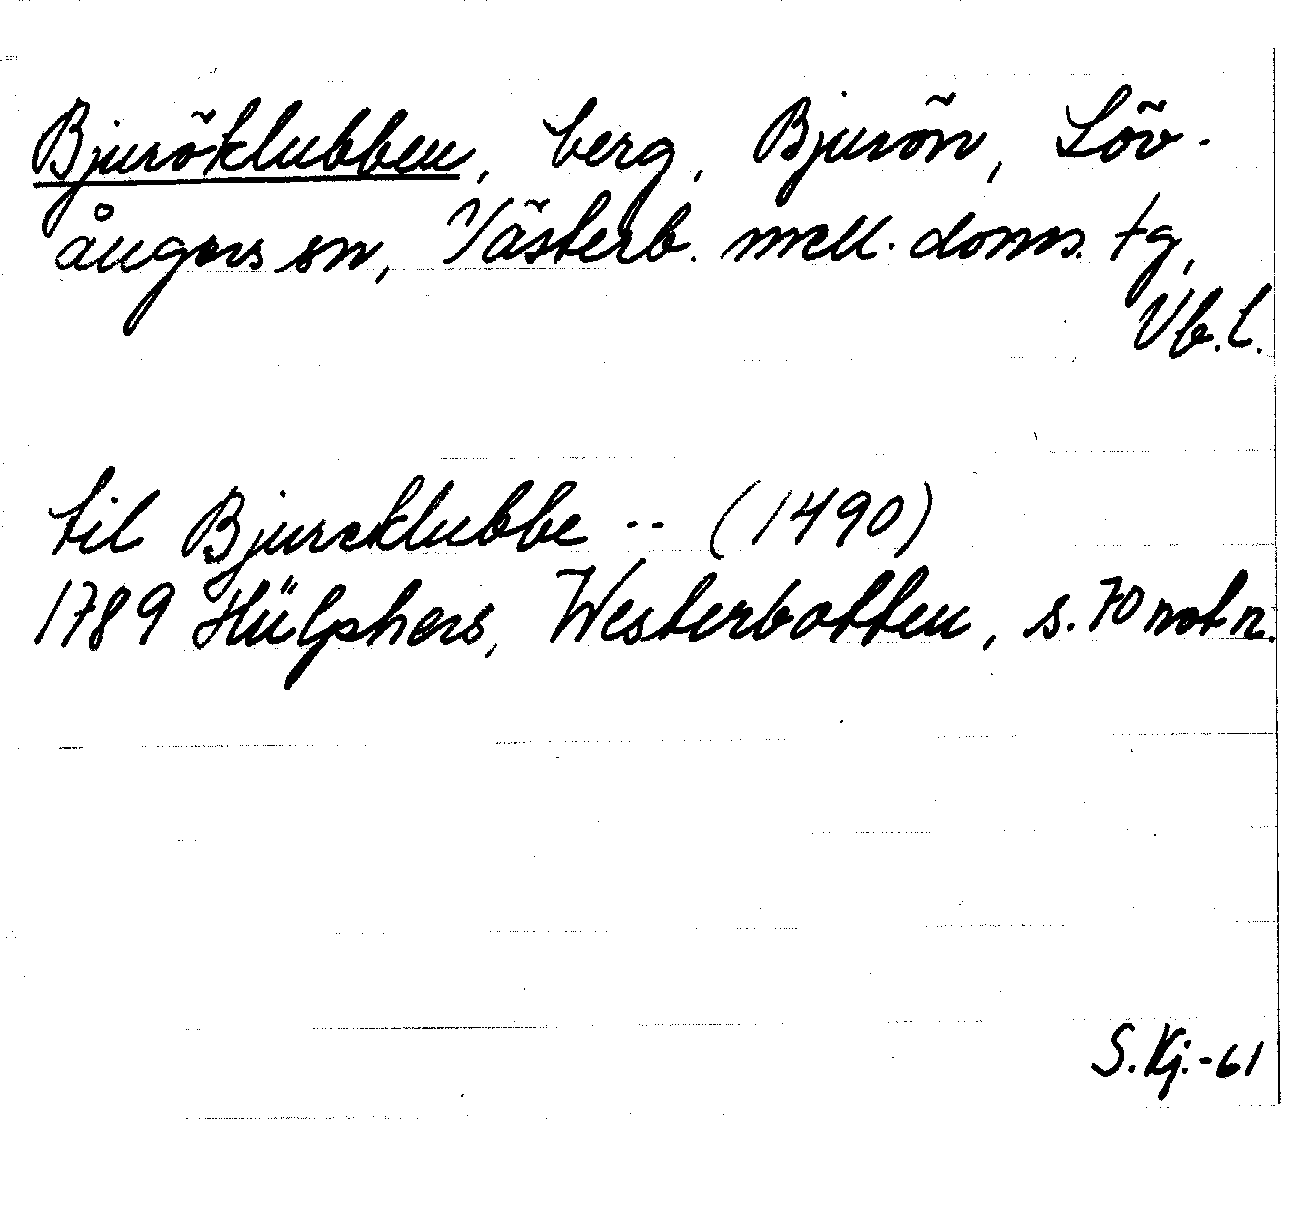 Bjuröklubben, berg, Bjurön, Löv-
ångers sn, Västerb. mell. doms. tg,
Vb.l.
til Bjureklubbe .. (1490)
1789 Hülphers, Westerbotten, s. 70 not n.
S. Kj.-61